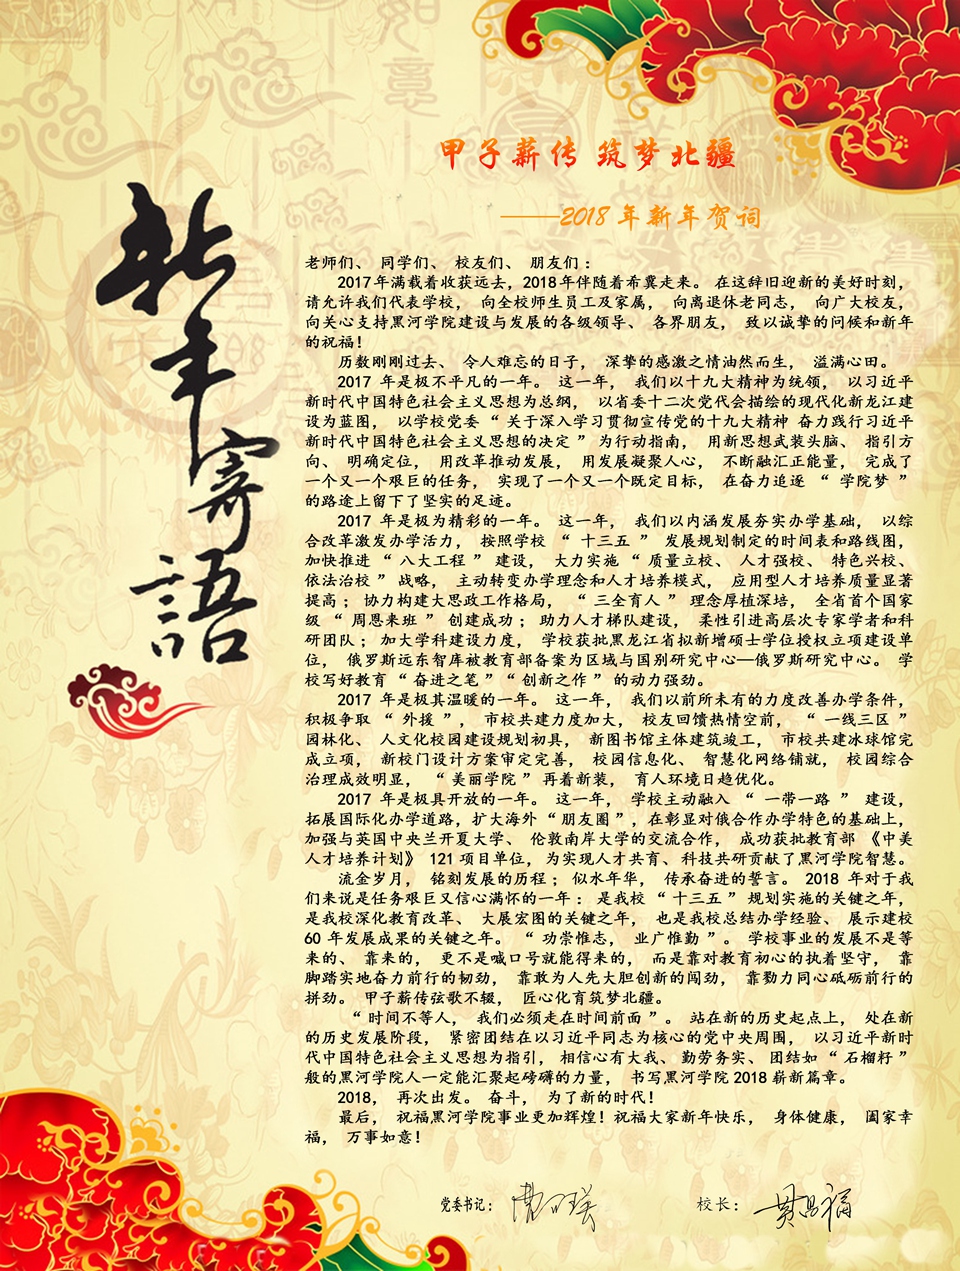 新年寄語
甲子薪传 筑梦北疆
——2018年新年贺词
老师们、同学们、校友们、朋友们：
2017年满载着收获远去，2018年伴随着希冀走来。在这辞旧迎新的美好时刻，
请允许我们代表学校，向全校师生员工及家属，向离退休老同志，向广大校友，
向关心支持黑河学院建设与发展的各级领导、各界朋友，致以诚挚的问候和新年
的祝福！
历数刚刚过去、令人难忘的日子，深挚的感激之情油然而生，溢满心田。
2017 年是极不平凡的一年。这一年，我们以十九大精神为统领，以习近平
新时代中国特色社会主义思想为总纲，以省委十二次党代会描绘的现代化新龙江建
设为蓝图，以学校党委“关于深入学习贯彻宣传党的十九大精神 奋力践行习近平
新时代中国特色社会主义思想的决定”为行动指南，用新思想武装头脑、指引方
向、明确定位，用改革推动发展，用发展凝聚人心，不断融汇正能量，完成了
一个又一个艰巨的任务，实现了一个又一个既定目标，在奋力追逐“学院梦”
的路途上留下了坚实的足迹。
2017 年是极为精彩的一年。这一年，我们以内涵发展夯实办学基础，以综
合改革激发办学活力，按照学校“十三五”发展规划制定的时间表和路线图，
加快推进“八大工程”建设，大力实施“质量立校、人才强校、特色兴校、
依法治校”战略，主动转变办学理念和人才培养模式，应用型人才培养质量显著
提高；协力构建大思政工作格局，“三全育人”理念厚植深培，全省首个国家
级“周恩来班”创建成功；助力人才梯队建设，柔性引进高层次专家学者和科
研团队；加大学科建设力度，学校获批黑龙江省拟新增硕士学位授权立项建设单
位，俄罗斯远东智库被教育部备案为区域与国别研究中心—俄罗斯研究中心。学
校写好教育“奋进之笔”“创新之作”的动力强劲。
2017 年是极其温暖的一年。这一年，我们以前所未有的力度改善办学条件，
积极争取“外援”，市校共建力度加大，校友回馈热情空前，“一线三区”
园林化、人文化校园建设规划初具，新图书馆主体建筑竣工，市校共建冰球馆完
成立项，新校门设计方案审定完善，校园信息化、智慧化网络铺就，校园综合
治理成效明显，“美丽学院”再着新装，育人环境日趋优化。
2017 年是极具开放的一年。这一年，学校主动融入“一带一路”建设，
拓展国际化办学道路，扩大海外“朋友圈”，在彰显对俄合作办学特色的基础上，
加强与英国中央兰开夏大学、伦敦南岸大学的交流合作，成功获批教育部《中美
人才培养计划》121项目单位，为实现人才共育、科技共研贡献了黑河学院智慧。
流金岁月，铭刻发展的历程；似水年华，传承奋进的誓言。2018 年对于我
们来说是任务艰巨又信心满怀的一年：是我校“十三五”规划实施的关键之年，
是我校深化教育改革、大展宏图的关键之年，也是我校总结办学经验、展示建校
60 年发展成果的关键之年。“功崇惟志，业广惟勤”。学校事业的发展不是等
来的、靠来的，更不是喊口号就能得来的，而是靠对教育初心的执着坚守，靠
脚踏实地奋力前行的韧劲，靠敢为人先大胆创新的闯劲，靠勠力同心砥砺前行的
拼劲。甲子薪传弦歌不辍，匠心化育筑梦北疆。
“时间不等人，我们必须走在时间前面”。站在新的历史起点上，处在新
的历史发展阶段，紧密团结在以习近平同志为核心的党中央周围，以习近平新时
代中国特色社会主义思想为指引，相信心有大我、勤劳务实、团结如“石榴籽”
般的黑河学院人一定能汇聚起磅礴的力量，书写黑河学院2018崭新篇章。
2018，再次出发。奋斗，为了新的时代！
最后，祝福黑河学院事业更加辉煌！祝福大家新年快乐，身体健康，阖家幸
福，万事如意！
党委书记：
校长：贯昌福